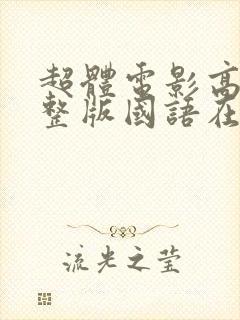 超體電影高
整版國語在
流光之莹